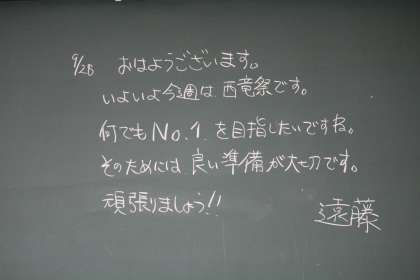 9/28 おはようございます。
いよいよ今週は、西竜祭です。
何でもNo.1.を目指したいですね。
そのためには良い準備が大切です。
頑張りましょう!!
遠藤